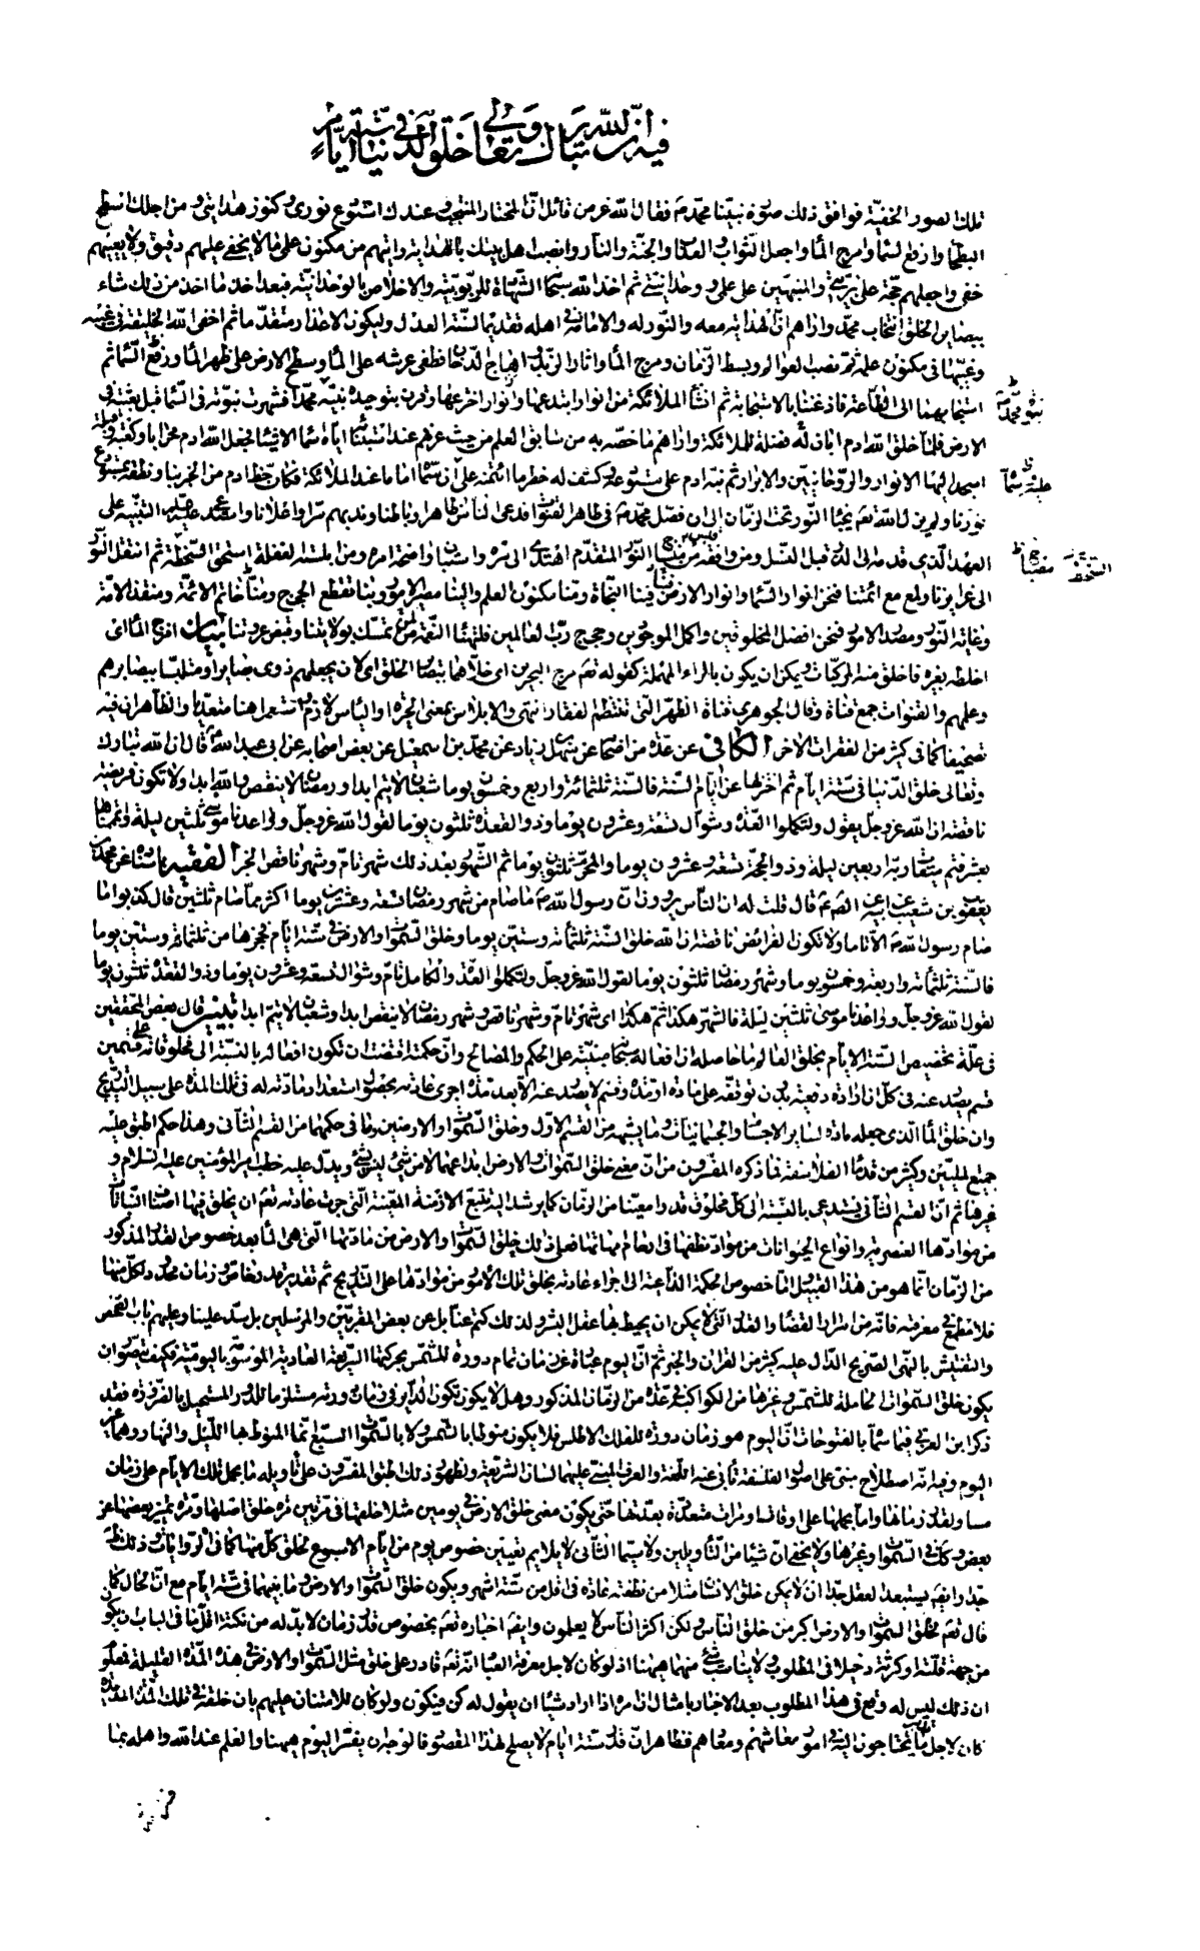 فيه ان الله تبارك وتعالى خلق الدنيا في ستة أيام
تلك الصور الخفية فوافق ذلك صورة نبينا محمد ص فقال الله عز من قائل انت المختار المنتجب وعندك استودع نوري وكنوز هدايتي ومن اجلك اسطح
البطحاء وارفع السماء وامرج الماء واجعل الثواب والعذاب والجنة والنار وانصب اهل بيتك بالهداية واتيهم من مكنون علمي ما لا يخفى عليهم دقيق ولا يغيبهم
خفي واجعلهم حجة على بريتي والمنبهين على علمي ووحدانيتي ثم اخذ الله سبحانه الشهادة للربوبية والاخلاص بالوحدانية فبعد اخذ ما اخذ من ذلك شاء
ببصائر الخلق انتخاب محمد واراهم ان الهداية معه والنور له والامامة في اهله تقديما لسنة العدل وليكون الاعذار متقدما ثم اخفى الله الخليقة في غيبه
وغيبها في مكنون علمه ثم نصب العوالم وبسط الزمان ومرج الماء واثار الزبد واهاج الدخان فطفى عرشه على الماء وسطح الارض على ظهر الماء ورفع السماء ثم
استجابهما الى الطاعة فاذعنتا بالاستجابة ثم انشأ الملائكة من انوار ابتدعها وانوار اخترعها وقرن بتوحيده نبوة محمد فشهرت نبوته في السماء قبل بعثته في
الارض فلما خلق الله ادم ابان له فضله للملائكة واراهم ما خصه به من سابق العلم من حيث عرفهم عند استنبائه اياه اسماء الاشياء فجعل الله ادم محرابا وكعبة وقبلة
اسجد اليها الانوار والروحانيين والابرار ثم نبه ادم على مستودعه وكشف له خطر ما ائتمنه على ان سماه اماما عند الملائكة فكان حظ ادم من الخبر انباءه ونطقه بمستودع
نورنا ولم يزل الله تعالى يخبأ النور تحت الزمان الى ان فصل محمدا ص في طاهر القنوات فدعى الناس ظاهرا وباطنا وندبهم سرا واعلانا واستدعى ع التنبيه على
العهد الذي قدمه الى الذر قبل النسل ومن وافقه قبس من مصباح النور المتقدم اهتدى الى سره واستبان واضح امره ومن ابلسته الغفلة استحق السخطة ثم انتقل النور
الى غرايزنا ولمع مع ائمتنا فنحن انوار السماء وانوار الارض فبنا النجاة ومنا مكنون العلم والينا مصير الامور وبنا تقطع الحجج ومنا خاتم الائمة ومنقذ الامة
وغاية النور ومصدر الامور فنحن افضل المخلوقين واكمل الموجودين وحجج رب العالمين فلتهنأ النعمة من تمسك بولايتنا وقبض عروتنا بيان امرج الماء اي
اخلطه بغيره فاخلق منه المركبات ويمكن ان يكون بالراء المهملة كقوله تعالى مرج البحرين اي خلاهما ببصائر الخلق اي لان يجعلهم ذوي بصاير او متلبسا ببصايرهم
وعلمهم والقنوات جمع قناة وقال الجوهري قناة الظهر التي تنتظم الفقار انتهى والابلاس بمعنى الحيرة او الياس لازم واستعمل هنا متعديا والظاهر ان فيه
تصحيفا كما في كثير من الفقرات الاخر الكافي عن عدة من اصحابنا عن سهل بن زياد عن محمد بن اسمعيل عن بعض اصحابه عن ابي عبد الله ع قال ان الله تبارك
وتعالى خلق الدنيا في ستة ايام ثم اختزلها عن ايام السنة فالسنة ثلثمائة واربع وخمسون يوما شعبان لا يتم ابدا ورمضان لا ينقص والله ابدا ولا تكون فريضة
ناقصة ان الله عز وجل يقول ولتكملوا العدة وشوال تسعة وعشرون يوما وذو القعدة ثلثون يوما لقول الله عز وجل وواعدنا موسى ثلثين ليلة واتممناها
بعشر فتم ميقات ربه اربعين ليلة وذو الحجة تسعة وعشرون يوما والمحرم ثلثون يوما ثم الشهور بعد ذلك شهر تام وشهر ناقص الخبر الفقيه باسناده عن محمد بن
يعقوب بن شعيب عن ابيه عن الصادق ع قال قلت له ان الناس يروون ان رسول الله ص ما صام من شهر رمضان تسعة وعشرين يوما اكثر مما صام ثلثين قال كذبوا ما
صام رسول الله ص الا تاما ولا تكون الفرائض ناقصة ان الله خلق السنة ثلثمائة وستين يوما وخلق السموات والارض في ستة ايام فحجزها من ثلثمائة وستين يوما
فالسنة ثلثمائة واربعة وخمسون يوما وشهر رمضان ثلثون يوما لقول الله عز وجل ولتكملوا العدة والكامل تام وشوال تسعة وعشرون يوما وذو القعدة ثلثون يوما
لقول الله عز وجل وواعدنا موسى ثلثين ليلة فالشهر هكذا ثم هكذا اي شهر تام وشهر ناقص وشهر رمضان لا ينقص ابدا وشعبان لا يتم ابدا تبيين قال بعض المحققين
في علة تخصيص الستة الايام بخلق العالم ما حاصله ان افعاله سبحانه مبنية على الحكم والمصالح وان حكمته اقتضت ان تكون افعاله بالنسبة الى مخلوقاته على قسمين
قسم يصدر عنه في كل آن ارادة دفعية بدون توقفه على مادة او مدة وقسم لا يصدر عنه الا بعد مدة اجرى عادته بحصول استعداد مادته له في تلك المدة على سبيل التدريج
وان خلق الماء الذي جعله مادة لسائر الاجسام والجسمانيات وما يشبهه من القسم الاول وخلق السموات والارضين وما في حكمهما من القسم الثاني وهذا حكم اطبق عليه
جميع المليين وكثير من قدماء الفلاسفة فما ذكره المفسرون من ان معنى خلق السموات والارض ابداعهما لا من شيء ليس بشيء ويدل عليه خطب امير المؤمنين عليه السلام و
غيرها ثم ان القسم الثاني يستدعي بالنسبة الى كل مخلوق قدرا معينا من الزمان كما يرشد اليه تتبع الازمنة المعينة التي جرت عادته تعالى ان يخلق فيها اصناف النباتات
من موادها العنصرية وانواع الحيوانات من مواد نطفها في ارحام امهاتها فعلى ذلك خلق السموات والارض من مادتهما التي هي الماء بعد خصوص القدر المذكور
من الزمان انما هو من هذا القبيل اما خصوص الحكمة الداعية الى اجراء عادته بخلق تلك الامور من موادها على التدريج ثم تقدير قدر خاص وزمان محدود لكل منها
فلا مطمع في معرفته فانه من اسرار القضاء والقدر التي لا يمكن ان يحيط بها عقل البشر ولذلك كتم عنا بل عن بعض المقربين والمرسلين بل سد علينا وعليهم باب الفحص
والتفتيش بالنهي الصريح الدال عليه كثير من القرآن والخبر ثم ان اليوم عبارة عن زمان تمام دورة للشمس بحركتها السريعة العادية الموسومة باليومية فكيف يتصور ان
يكون خلق السموات الحاملة للشمس وغيرها من الكواكب في عدة من الزمان المذكور وهل لا يكون تكون الدائر في زمان دورته مستلزما للدور المستحيل بالضرورة فقد
ذكر ابن العربي فيما سماه بالفتوحات ان اليوم هو زمان دورة للفلك الاطلس فلا يكون منوطا بالشمس ولا بالسموات السبع انما المنوط بها الليل والنهار وهما غير
اليوم وفيه انه اصطلاح مبني على اصول الفلسفة تأبى عنه اللغة والعرف المبني عليهما لسان الشريعة ولظهور ذلك اطبق المفسرون على تأويله اما بحمل تلك الايام على زمان
مساو لقدر زمانها واما بحملها على اوقات او مرات متعددة بعدتها حتى يكون معنى خلق الارض في يومين مثلا خلقها في مرتين مرة خلق اصلها ومرة تمييز بعضها عن
بعض وكذلك السموات وغيرها ولا يخفى ان شيئا من التأويلين ولا سيما الثاني لا يلايم تعيين خصوص يوم من ايام الاسبوع لخلق كل منها كما في الروايات وذلك ظاهر
جدا وايضا يستبعد العقل جدا ان لا يمكن خلق الانسان مثلا من نطفته عادة في اقل من ستة اشهر ويكون خلق السموات والارض وما بينهما في ستة ايام مع ان الحال كما
قال تعالى لخلق السموات والارض اكبر من خلق الناس ولكن اكثر الناس لا يعلمون وايضا اخباره تعالى بخصوص قدر زمان لا بد له من نكتة اقل ما في الباب ان يكون
من جهة قلته وكثرته دخيلا في المطلوب ولا يناسب شيء منهما هيهنا اذ لو كان لاجل معرفة العباد انه تعالى قادر على خلق مثل السموات والارض في هذه المدة القليلة فمعلوم
ان ذلك ليس له وقع في هذا المطلوب بعد الاخبار بامثال ان امره اذا اراد شيئا ان يقول له كن فيكون ولو كان للامتنان عليهم بان خلقه في تلك المدة المديدة
كان لاجل تدبير ما يحتاجون اليه في امور معاشهم ومعادهم فظاهر ان قدر ستة ايام لا يصلح لهذا المقصود فالوجه ان يفسر اليوم هيهنا والعلم عند الله واهله بما